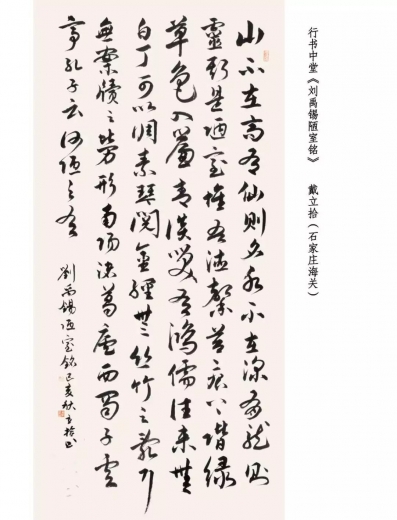 行书中堂《刘禹锡陋室铭》 戴立拾（石家庄海关）
山不在高有仙则名水不在深有龙则
靈斯是陋室惟吾德馨苔痕上階緑
草色入簾青談笑有鴻儒往来無
白丁可以調素琴閲金經無丝竹之亂耳
無案牘之勞形南陽諸葛廬西蜀子雲
亭孔子云何陋之有
劉禹錫陋室銘己亥秋立拾书